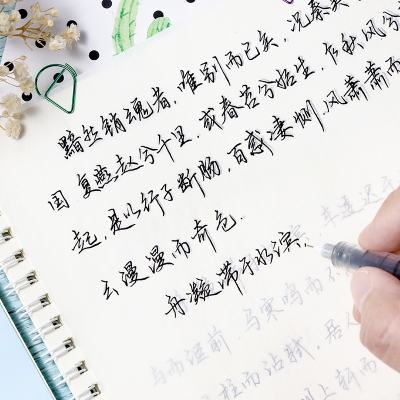 黯然销魂者，唯别而已矣，况秦
国，复燕赵兮千里，或春苔兮始生，乍秋风兮
起，是以行子断肠，百感凄恻，风萧萧而
云漫漫而奇色.
舟凝滞于水滨，车逶迟于
与而讵前，马寒鸣而不
柱而沾轼，居人
上轩而